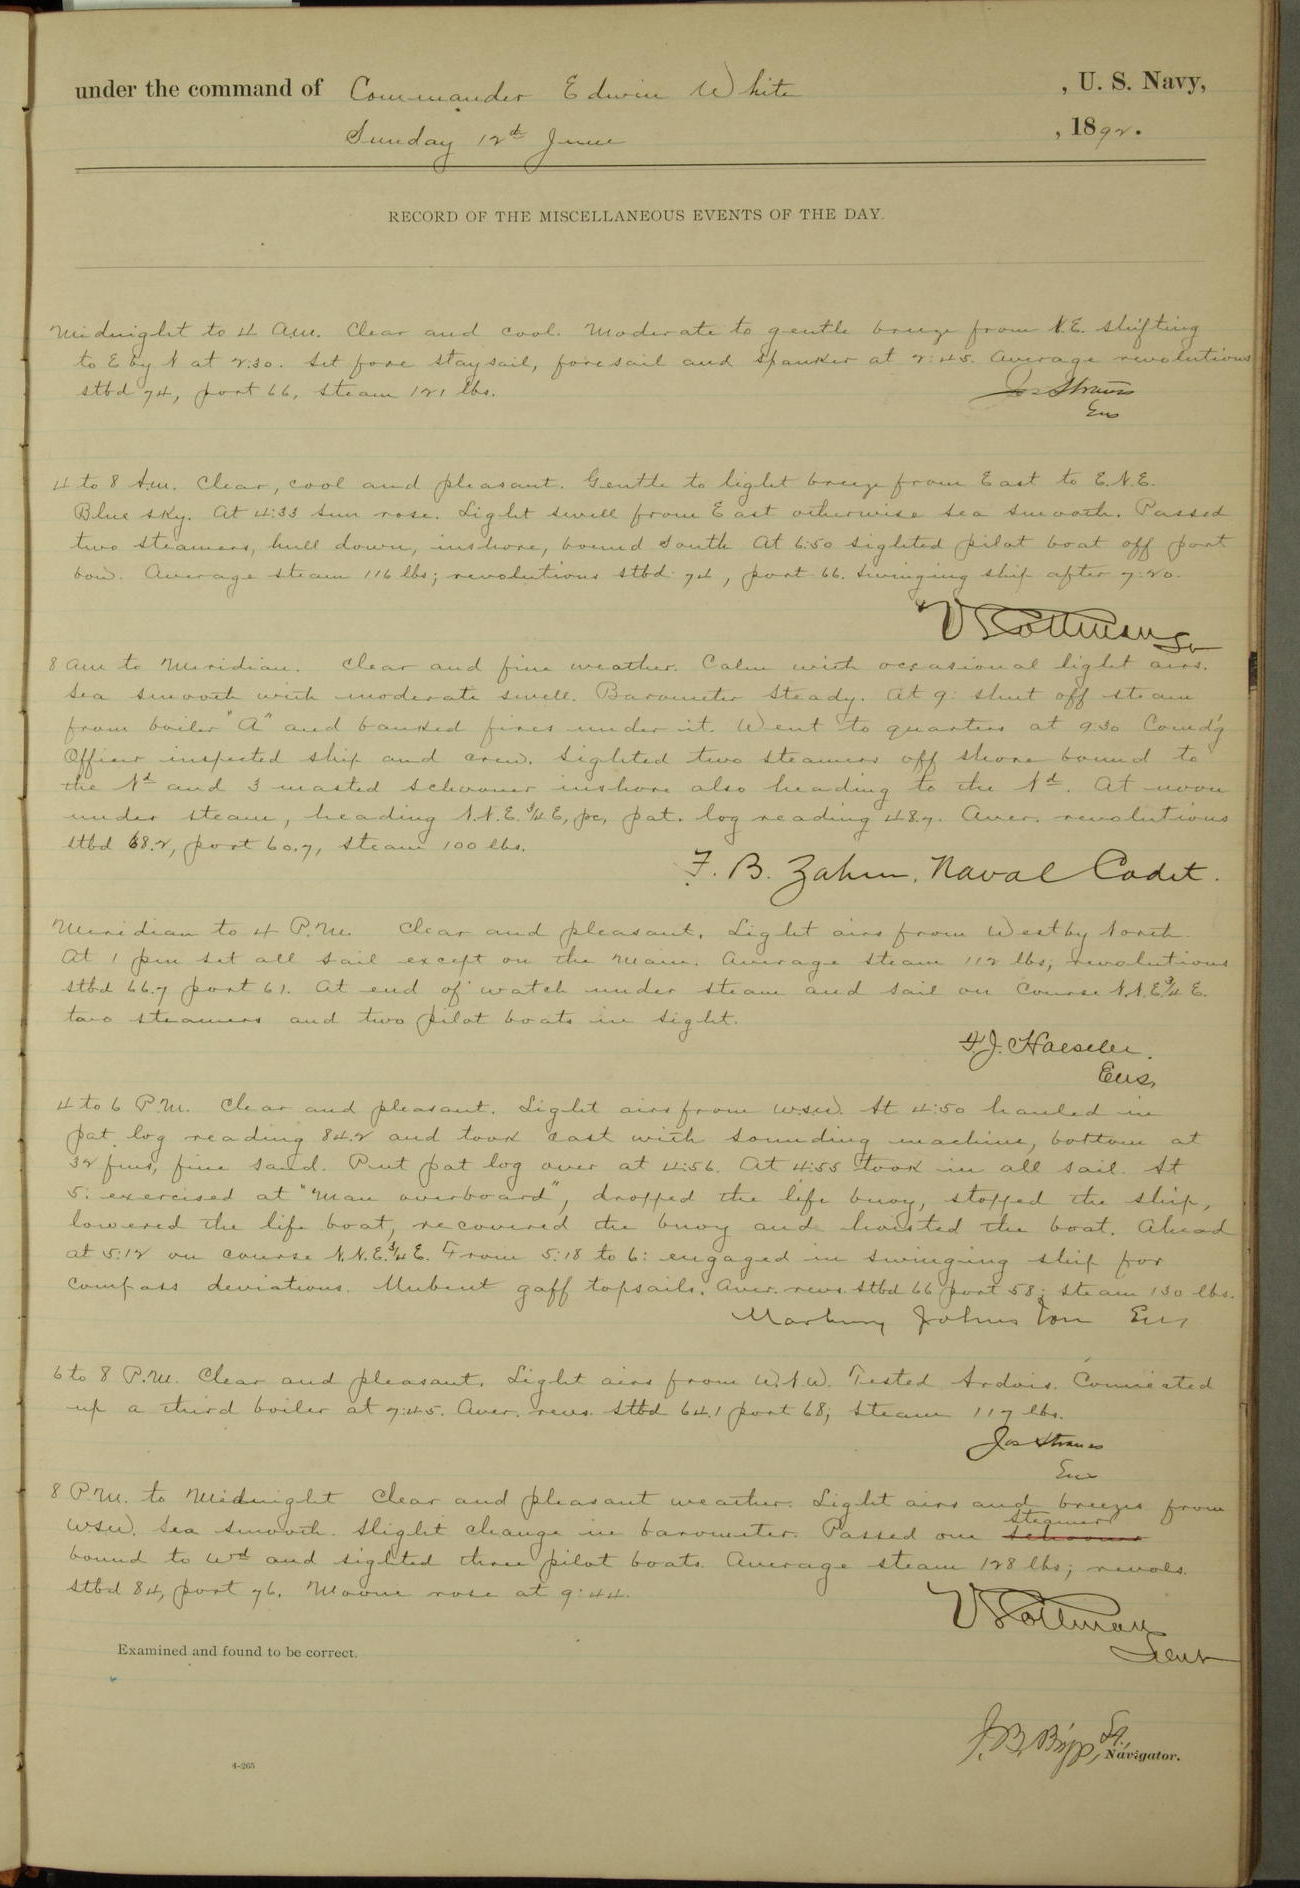 under the command of Commander Edwin White , U. S. Navy,
Sunday 12th June , 1892.
RECORD OF THE MISCELLANEOUS EVENTS OF THE DAY.
Midnight to 4 A.M. Clear and cool. Moderate to gentle breeze from N.E. shifting
to E by N at 2:30. Set fore staysail, foresail and spanker at 2:45. Average revolutions
stbd 74, port 66, steam 121 lbs.
Jos Strauss
Ens
4 to 8 A.M. Clear, cool and pleasant. Gentle to light breeze from East to E.N.E.
Blue sky. At 4:33 sun rose. Light swell from East otherwise sea smooth. Passed
two steamers, hull down, inshore, bound South. At 6:50 sighted pilot boat off port
bow. Average steam 116 lbs; revolutions stbd 74, port 66. Swinging ship after 7:20.
V S Cottman
8 am to Meridian. Clear and fine weather. Calm with occasional light airs.
Sea smooth with moderate swell. Barometer steady. At 9: shut off steam
from boiler "A" and banked fires under it. Went to quarters at 9:30 Comd'g
Officer inspected ship and crew. Sighted two steamers off shore bound to
the Nd and 3 masted schooner inshore also heading to the Nd. At noon
under steam, heading N.N.E.3/4 E, pc, pat. log reading 48.7. Aver. revolutions
stbd 68.2, port 60.7, steam 100 lbs.
F. B. Zahm, Naval Cadet.
Meridian to 4 P.M. Clear and pleasant. Light airs from West by North.
At 1 pm set all sail except on the Main. Average steam 112 lbs; revolutions
stbd 66.7 port 61. At end of watch under steam and sail on course N.N.E.3/4 E.
two steamers and two pilot boats in sight.
F J. Haeseler.
Ens,
4 to 6 P.M. Clear and pleasant. Light airs from W.S.W. At 4:50 hauled in
pat. log reading 84.2 and took cast with sounding machine, bottom at
32 fms, fine sand. Put pat log over at 4:56. At 4:55 took in all sail. At
5: exercised at "Man overboard", dropped the life buoy, stopped the ship,
lowered the life boat, recovered the buoy and hoisted the boat. Ahead
at 5:12 on course N.N.E.3/4 E. From 5:18 to 6: engaged in swinging ship for
compass deviations. Unbent gaff topsails. Aver. revs. stbd 66 port 58; steam 130 lbs.
Marbury Johnston Ens
6 to 8 P.M. Clear and pleasant. Light airs from W.N.W. Tested Ardois. Connected
up a third boiler at 7:45. Aver. revs. stbd 64.1 port 68; steam 117 lbs.
Jos Strauss
Ens
8 P.M. to Midnight Clear and pleasant weather. Light airs and breezes from
WSW. Sea smooth. Slight change in barometer. Passed one schooner steamer
bound to Wd and sighted three pilot boats. Average steam 128 lbs; revols.
stbd 84, port 76. Moon rose at 9:44.
V S Cottman
Lieut
Examined and found to be correct.
J. B. Bripp, Lt,
Navigator.
4-265